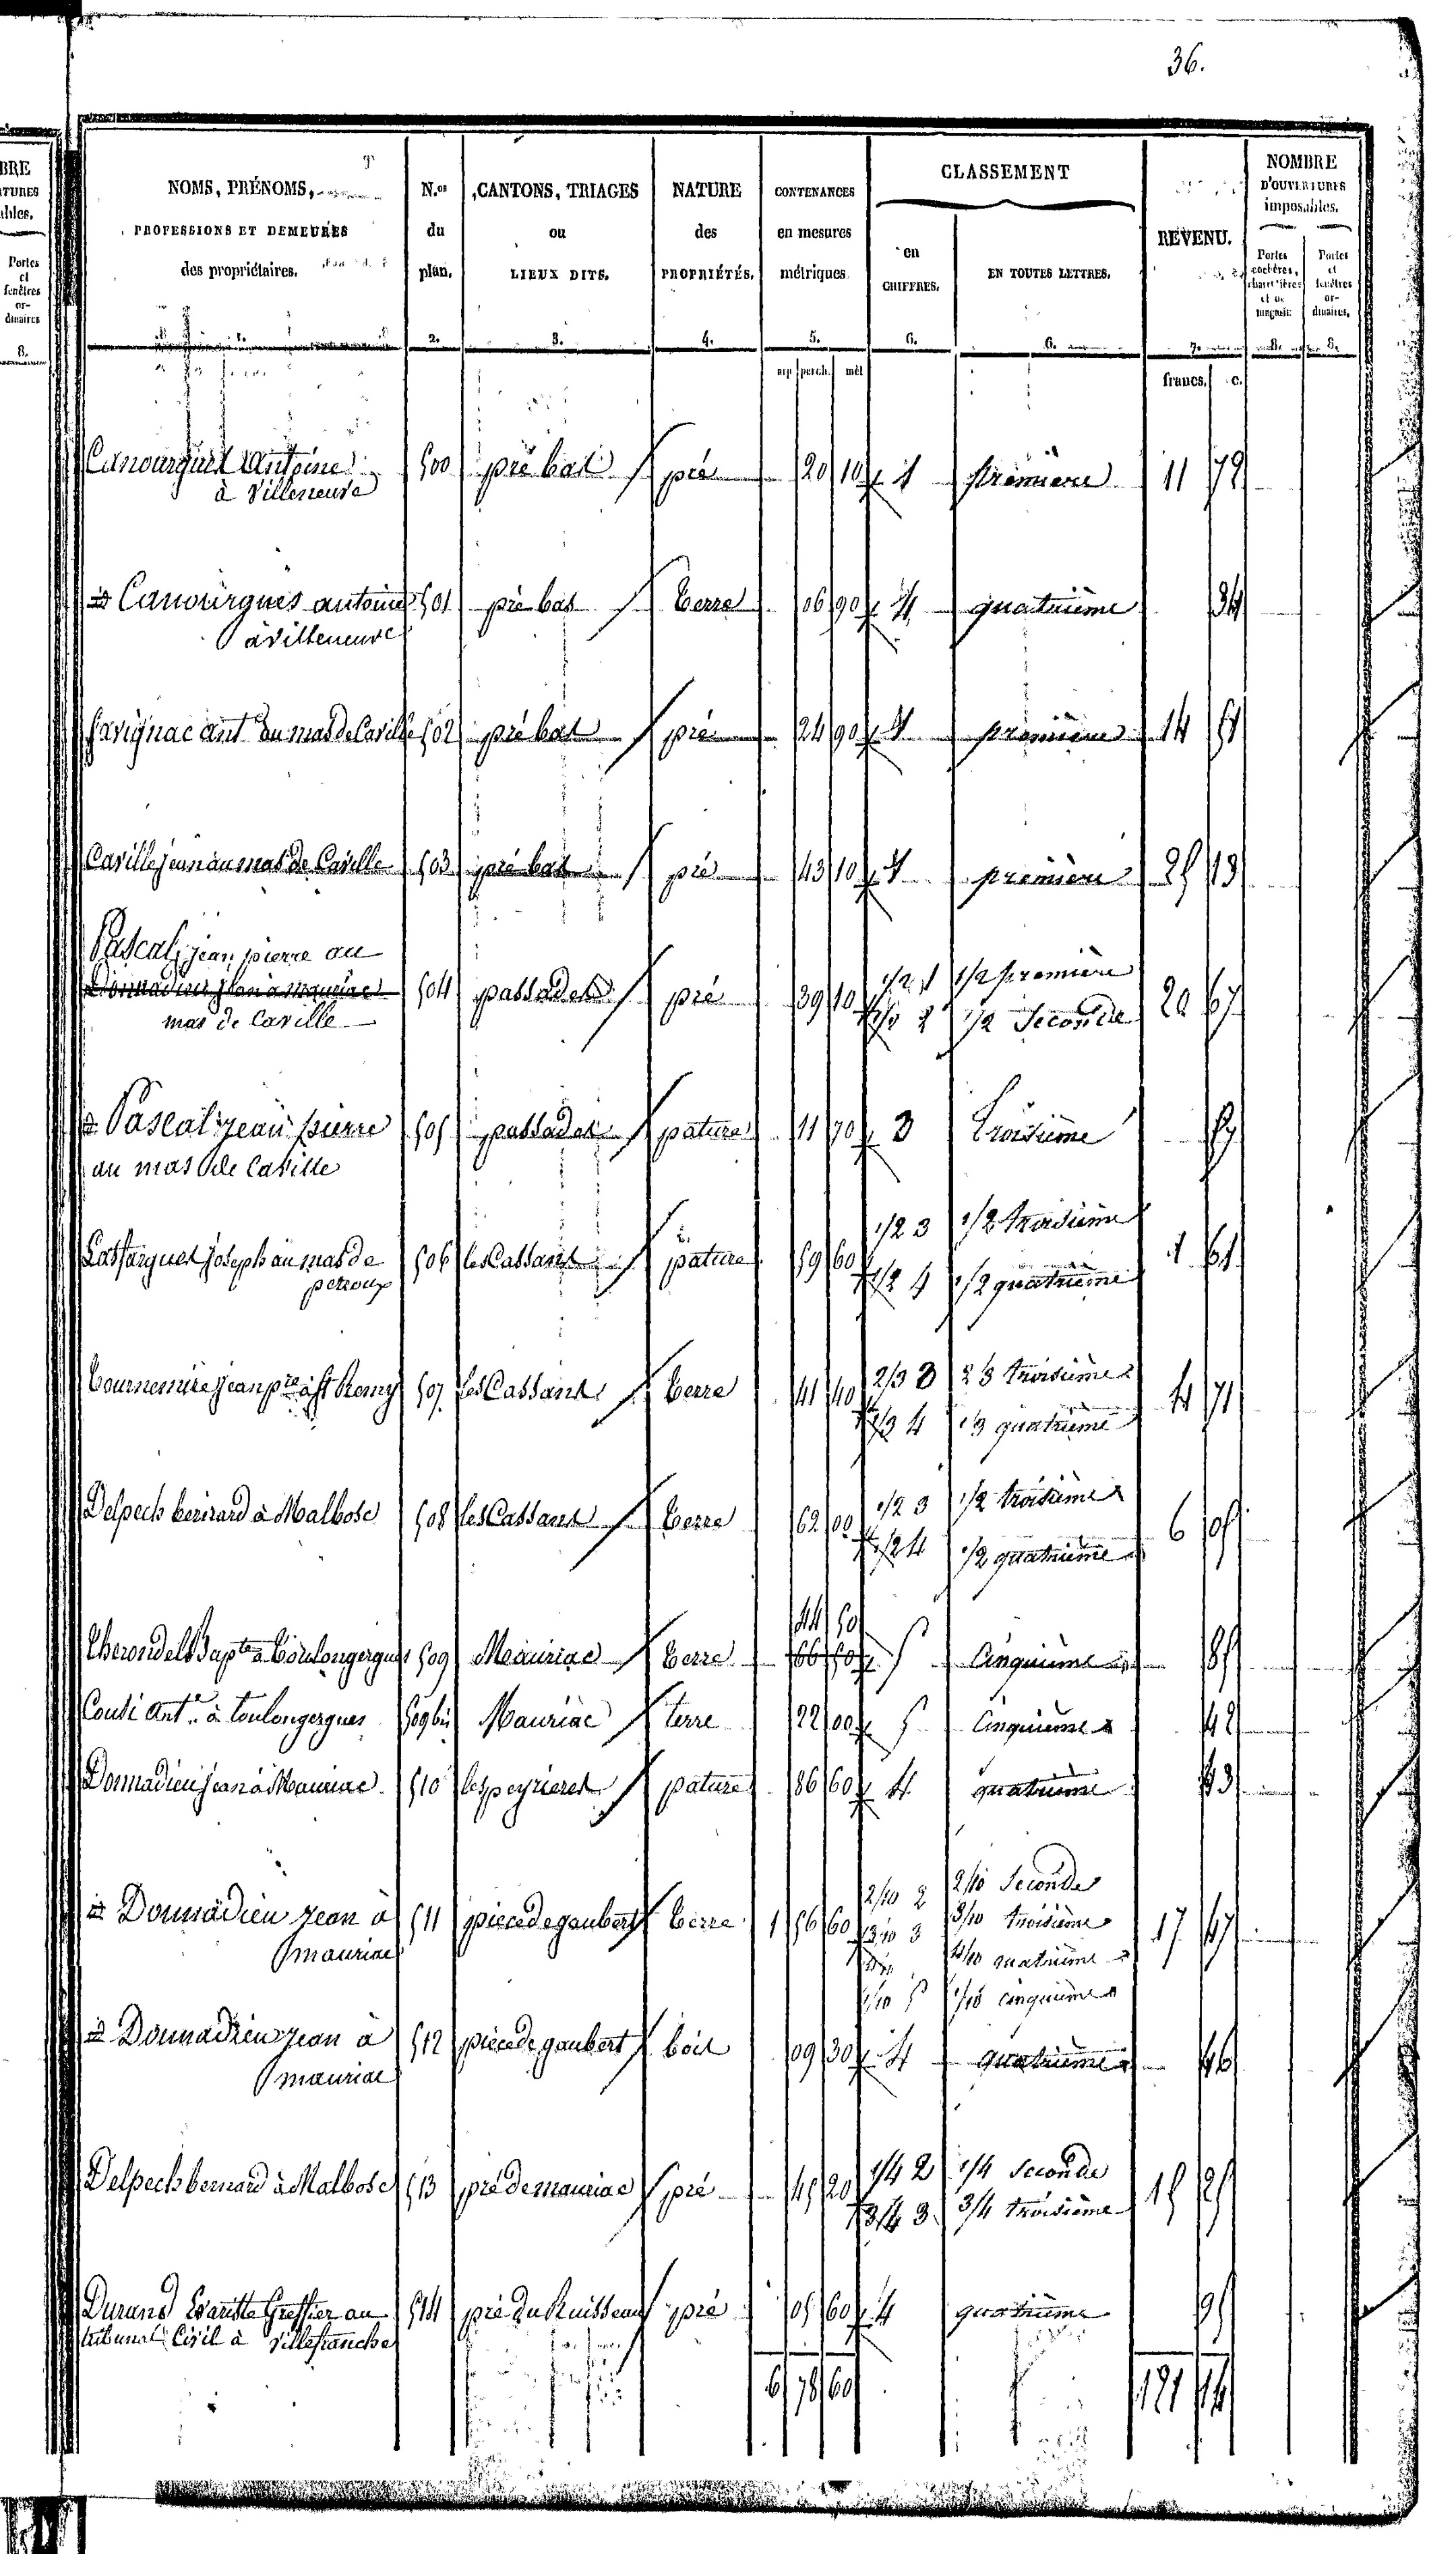 36.
BRE
TURES
ables.
Portes
et
fenêtres
or-
dinaires
8.
NOMS, PRÉNOMS, N.os CANTONS, TRIAGES NATURE CONTENANCES CLASSEMENT REVENU. NOMBRE
D'OUVERTURES
imposables.
PROFESSIONS ET DEMEURES du ou des en mesures
des propriétaires. plan. LIEUX DITS. PROPRIÉTÉS. métriques. en CHIFFRES. EN TOUTES LETTRES.
Portes cochères, charretières et de magasin. Portes et fenêtres or- dinaires.
1. 2. 3. 4. 5. 6. 6. 7. 8. 8.
arp. perch. mèt francs. c.
Canourgues Antoine 500 pré bas pré 20 10 1 première 11 72
à Villeneuve
Canourgues antoine 501 pré bas terre 06 90 4 quatrième 34
à Villeneuve
Savignac ant.ne au mas de Caville 502 pré bas pré 24 90 1 première 14 51
Caville jean au mas de Caville 503 pré bas pré 43 10 1 première 25 13
Pascal, jean pierre au
Donnadieu jean à mauriac 504 passades pré 39 10 1/2 1 1/2 première 20 67
mas de Caville 1/2 2 1/2 Seconde
Pascal jean pierre 505 passades pature 11 70 3 troisième
au mas de Caville
Lasfargues joseph au mas de 506 les Cassans pature 59 60 1/2 3 1/2 troisième 1 61
petroux 1/2 4 1/2 quatrième
Cournessière jean pre à St Remy 507 les Cassans terre 41 40 2/3 3 2/3 troisième 4 71
1/3 4 1/3 quatrième
Delpech bernard à Malbosc 508 les Cassans terre 62 00 1/2 3 1/2 troisième 6 05
1/2 4 1/2 quatrième
44 50
Therondels Bapte à Toulongergues 509 Mauriac terre 66 50 5 Cinquième 85
Couli Ant.e à Toulongergues 509 bis Mauriac terre 22 00 5 Cinquième 42
Donnadieu jean à Mauriac 510 les peyrieres pature 86 60 4 quatrième 43
2/10 2 2/10 Seconde
Donnadieu jean à 511 piece de gaubert terre 1 56 60 3/10 3 3/10 troisième 17 47
mauriac 4/10 quatrième
1/10 5 1/10 cinquième
Donnadieu jean à 512 piece de gaubert bois 09 30 4 quatrième 46
mauriac
Delpech bernard à Malbosc 513 pré de mauriac pré 45 20 1/4 2 1/4 Seconde 15 25
3/4 3 3/4 troisième
Durand Evariste Greffier au 514 pré du Ruisseau pré 05 60 4 quatrième 95
tribunal Civil à Villefranche
6 78 60 121 14